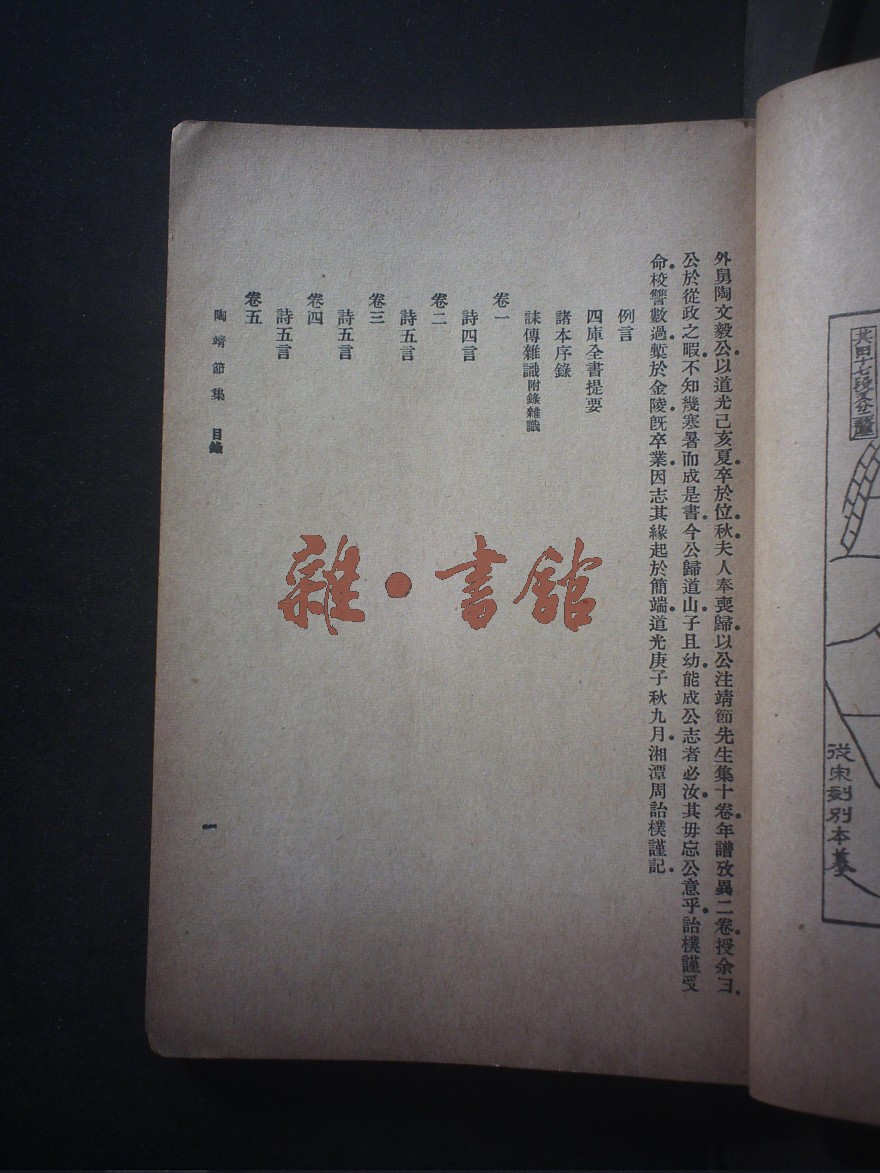 其田十七段又分二蓝
從宋刻別本摹
外舅陶文毅公以道光己亥夏卒於位秋夫人奉喪歸以公注靖節先生集十卷年譜攷異二卷授余曰
公於從政之暇不知幾寒暑而成是書今公歸道山子且幼能成公志者必汝其毋忘公意乎詒樸謹受
命校讐數過槧於金陵旣卒業因志其緣起於簡端道光庚子秋九月湘潭周詒樸謹記
例言
四庫全書提要
諸本序錄
誄傳雜識附錄雜識
卷一
詩四言
卷二
詩五言
卷三
詩五言
卷四
詩五言
卷五
陶靖節集 目錄
一
雜·書館